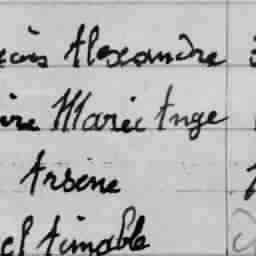 çois Alexandre
ire Marie Ange
Arsène
el Aimable